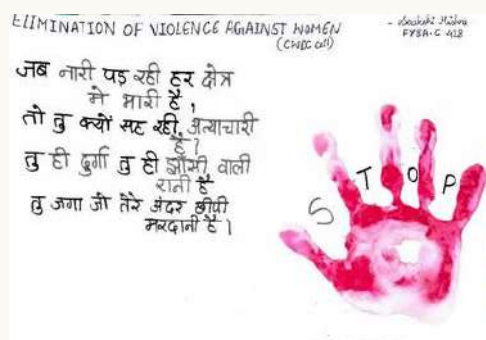 ELIMINATION OF VIOLENCE AGAINST WOMEN
(CWDC Cell)
- Saakshi Mishra
FYBA-C 418
जब नारी पड़ रही हर क्षेत्र
मे भारी है,
तो तु क्यों सह रही, अत्याचारी
है?
तु ही दुर्गा तु ही झाँसी वाली
रानी है
तु जगा जो तेरे अंदर छीपी
मरदानी है।
S T O P